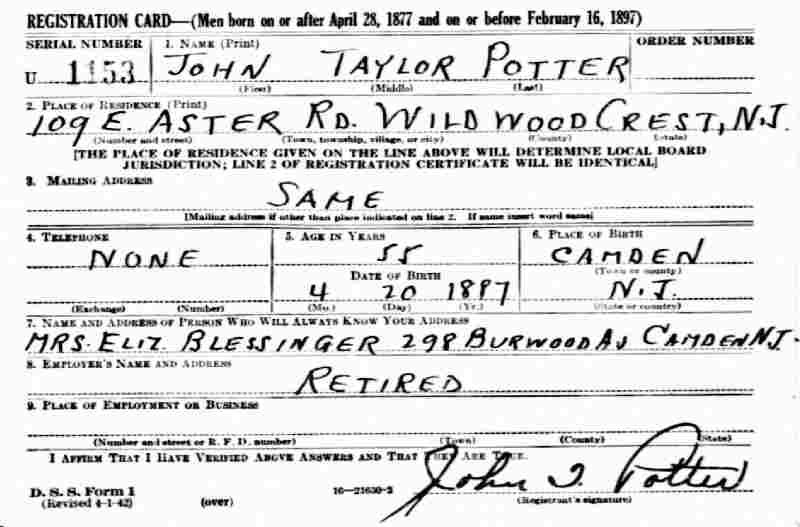 REGISTRATION CARD—(Men born on or after April 28, 1877 and on or before February 16, 1897)
SERIAL NUMBER 1. NAME (Print) ORDER NUMBER
U 1153 JOHN TAYLOR POTTER
(First) (Middle) (Last)
2. PLACE OF RESIDENCE (Print)
109 E. ASTER RD. WILDWOOD CREST, N.J.
(Number and street) (Town, township, village, or city) (County) (State)
[THE PLACE OF RESIDENCE GIVEN ON THE LINE ABOVE WILL DETERMINE LOCAL BOARD
JURISDICTION; LINE 2 OF REGISTRATION CERTIFICATE WILL BE IDENTICAL]
3. MAILING ADDRESS
SAME
[Mailing address if other than place indicated on line 2. If same insert word same]
4. TELEPHONE 5. AGE IN YEARS 6. PLACE OF BIRTH
NONE 55 CAMDEN
DATE OF BIRTH (Town or county)
4 20 1887 N.J.
(Exchange) (Number) (Mo.) (Day) (Yr.) (State or country)
7. NAME AND ADDRESS OF PERSON WHO WILL ALWAYS KNOW YOUR ADDRESS
MRS. ELIZ. BLESSINGER 298 BURWOOD AV CAMDEN N.J.
8. EMPLOYER'S NAME AND ADDRESS
RETIRED
9. PLACE OF EMPLOYMENT OR BUSINESS
(Number and street or R. F. D. number) (Town) (County) (State)
I AFFIRM THAT I HAVE VERIFIED ABOVE ANSWERS AND THAT THEY ARE TRUE.
John T. Potter
D. S. S. Form 1
(Revised 4-1-42) (over) 16-21630-2 (Registrant's signature)